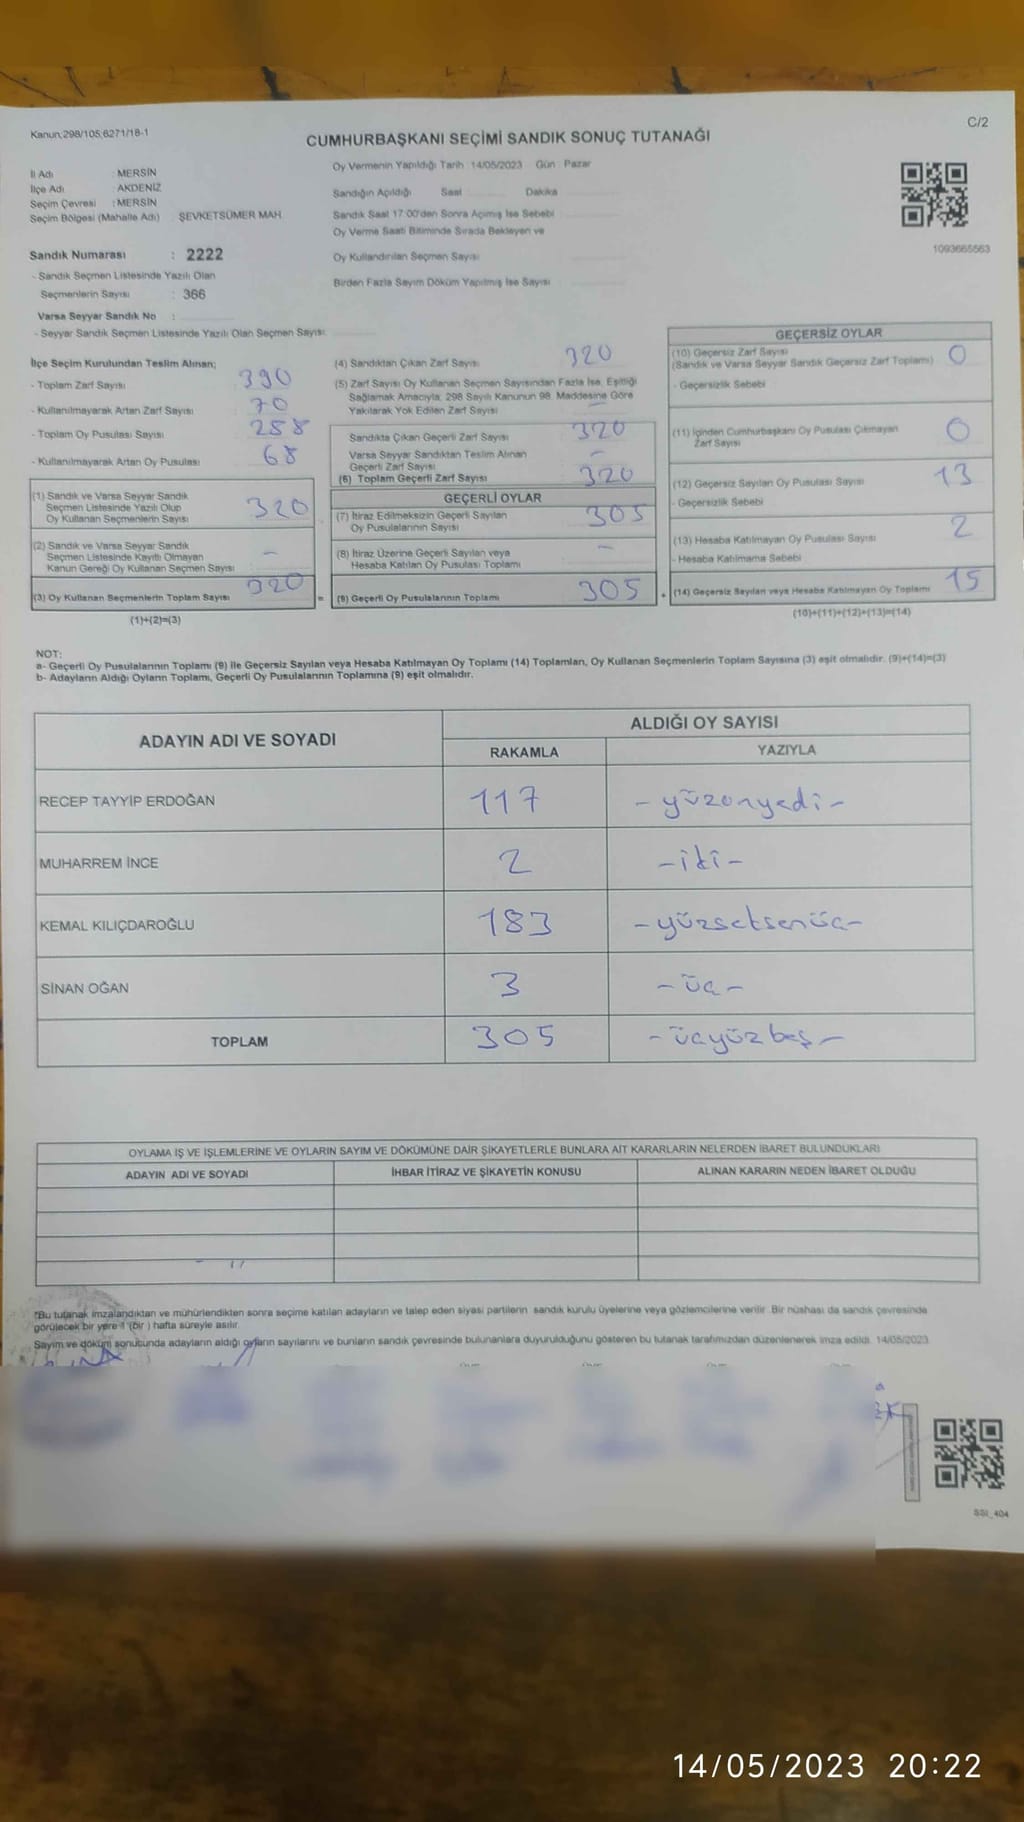 Kanun;298/105;6271/18-1
C/2
CUMHURBAŞKANI SEÇİMİ SANDIK SONUÇ TUTANAĞI
İl Adı : MERSİN
İlçe Adı : AKDENİZ
Seçim Çevresi : MERSİN
Seçim Bölgesi (Mahalle Adı) ŞEVKETSÜMER MAH.
Oy Vermenin Yapıldığı Tarih : 14/05/2023 Gün : Pazar
Sandığın Açıldığı Saat Dakika
Sandık Saat 17:00'den Sonra Açımış İse Sebebi
Oy Verme Saati Bitiminde Sırada Bekleyen ve
Oy Kullandırılan Seçmen Sayısı
Birden Fazla Sayım Döküm Yapılmış İse Sayısı
1093665563
Sandık Numarası : 2222
- Sandık Seçmen Listesinde Yazılı Olan
Seçmenlerin Sayısı : 366
Varsa Seyyar Sandık No :
- Seyyar Sandık Seçmen Listesinde Yazılı Olan Seçmen Sayısı:
İlçe Seçim Kurulundan Teslim Alınan;
- Toplam Zarf Sayısı 390
- Kullanılmayarak Artan Zarf Sayısı 70
- Toplam Oy Pusulası Sayısı 258
- Kullanılmayarak Artan Oy Pusulası 68
(1) Sandık ve Varsa Seyyar Sandık
Seçmen Listesinde Yazılı Olup
Oy Kullanan Seçmenlerin Sayısı 320
(2) Sandık ve Varsa Seyyar Sandık
Seçmen Listesinde Kayıtlı Olmayan
Kanun Gereği Oy Kullanan Seçmen Sayısı -
(3) Oy Kullanan Seçmenlerin Toplam Sayısı 320
(1)+(2)=(3)
(4) Sandıktan Çıkan Zarf Sayısı 320
(5) Zarf Sayısı Oy Kullanan Seçmen Sayısından Fazla İse, Eşitliği
Sağlamak Amacıyla, 298 Sayılı Kanunun 98. Maddesine Göre
Yakılarak Yok Edilen Zarf Sayısı -
Sandıkta Çıkan Geçerli Zarf Sayısı 320
Varsa Seyyar Sandıktan Teslim Alınan
Geçerli Zarf Sayısı -
(6) Toplam Geçerli Zarf Sayısı 320
GEÇERLİ OYLAR
(7) İtiraz Edilmeksizin Geçerli Sayılan
Oy Pusulalarının Sayısı 305
(8) İtiraz Üzerine Geçerli Sayılan veya
Hesaba Katılan Oy Pusulası Toplamı -
= (9) Geçerli Oy Pusulalarının Toplamı 305
GEÇERSİZ OYLAR
(10) Geçersiz Zarf Sayısı
(Sandık ve Varsa Seyyar Sandık Geçersiz Zarf Toplamı) 0
- Geçersizlik Sebebi
(11) İçinden Cumhurbaşkanı Oy Pusulası Çıkmayan
Zarf Sayısı 0
(12) Geçersiz Sayılan Oy Pusulası Sayısı 13
- Geçersizlik Sebebi
(13) Hesaba Katılmayan Oy Pusulası Sayısı 2
- Hesaba Katılmama Sebebi
+ (14) Geçersiz Sayılan veya Hesaba Katılmayan Oy Toplamı 15
(10)+(11)+(12)+(13)=(14)
NOT:
a- Geçerli Oy Pusulalarının Toplamı (9) ile Geçersiz Sayılan veya Hesaba Katılmayan Oy Toplamı (14) Toplamları, Oy Kullanan Seçmenlerin Toplam Sayısına (3) eşit olmalıdır. (9)+(14)=(3)
b- Adayların Aldığı Oyların Toplamı, Geçerli Oy Pusulalarının Toplamına (9) eşit olmalıdır.
ADAYIN ADI VE SOYADI
ALDIĞI OY SAYISI
RAKAMLA YAZIYLA
RECEP TAYYİP ERDOĞAN 117 - yüzonyedi -
MUHARREM İNCE 2 - iki -
KEMAL KILIÇDAROĞLU 183 - yüzseksenüç -
SİNAN OĞAN 3 - üç -
TOPLAM 305 - üçyüzbeş -
OYLAMA İŞ VE İŞLEMLERİNE VE OYLARIN SAYIM VE DÖKÜMÜNE DAİR ŞİKAYETLERLE BUNLARA AİT KARARLARIN NELERDEN İBARET BULUNDUKLARI
ADAYIN ADI VE SOYADI İHBAR İTİRAZ VE ŞİKAYETİN KONUSU ALINAN KARARIN NEDEN İBARET OLDUĞU
*Bu tutanak imzalandıktan ve mühürlendikten sonra seçime katılan adayların ve talep eden siyasi partilerin sandık kurulu üyelerine veya gözlemcilerine verilir. Bir nüshası da sandık çevresinde
görülecek bir yere 1 (bir ) hafta süreyle asılır.
Sayım ve döküm sonucunda adayların aldığı oyların sayılarını ve bunların sandık çevresinde bulunanlara duyurulduğunu gösteren bu tutanak tarafımızdan düzenlenerek imza edildi. 14/05/2023
SSI_404
14/05/2023 20:22